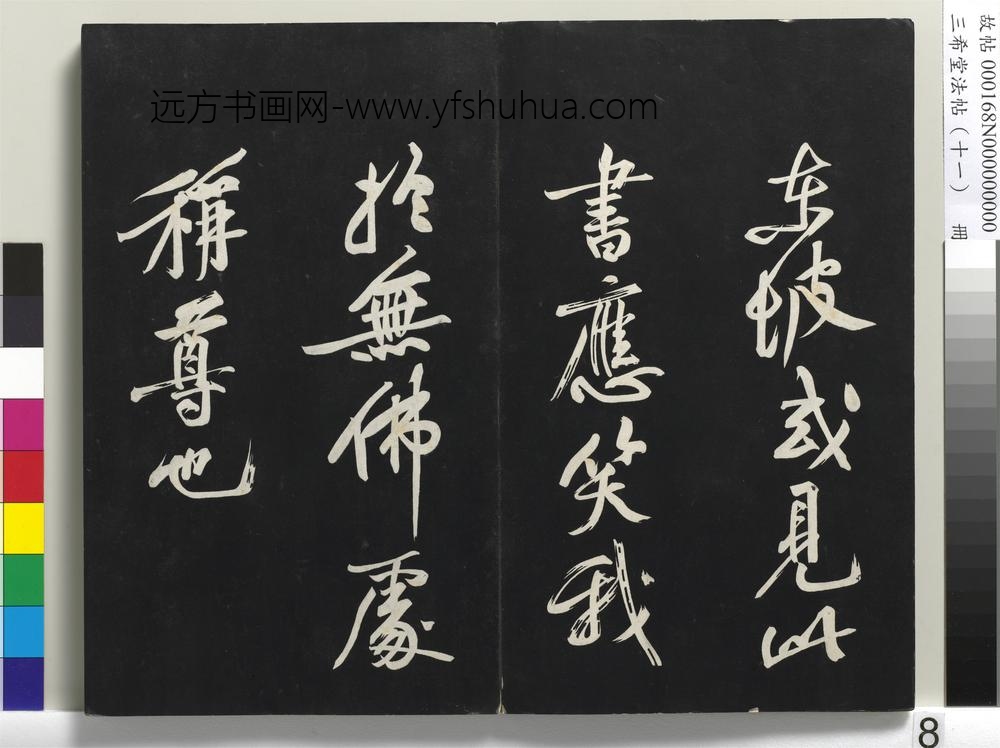 远方书画网-www.yfshuhua.com
东坡或見此
書應笑我
於無佛處
稱尊也
故帖 000168N000000000
三希堂法帖（十一） 冊
8